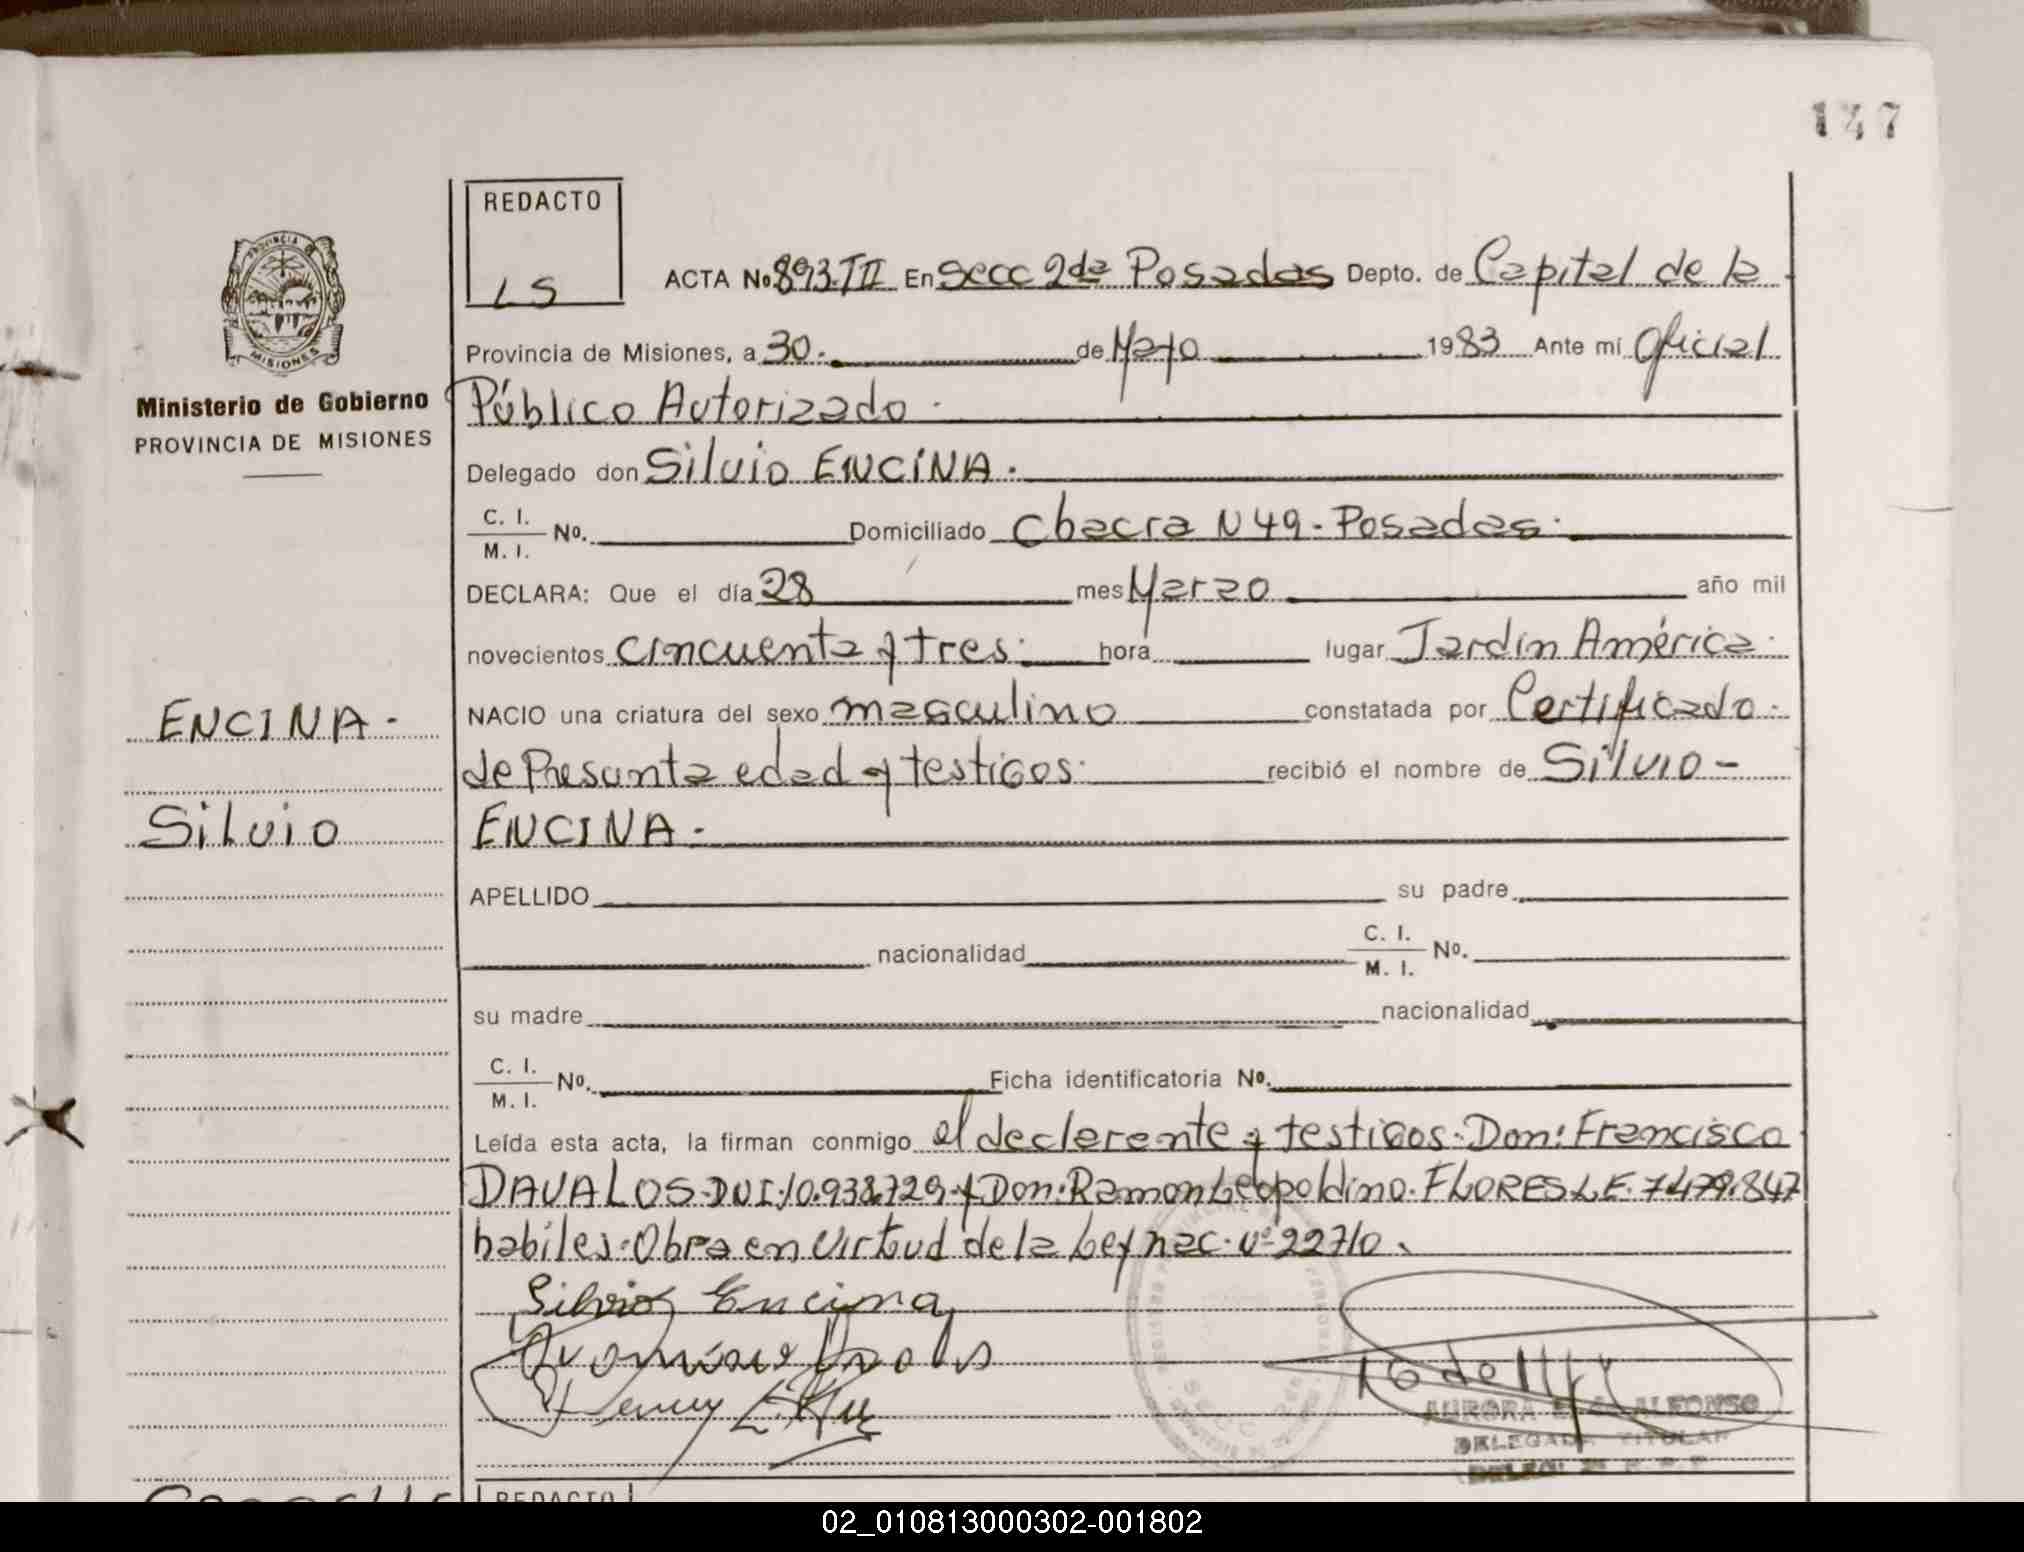 147
REDACTO
LS
PROVINCIA DE
MISIONES
Ministerio de Gobierno
PROVINCIA DE MISIONES
ENCINA.
Silvio
ACTA No. 893.TII En Secc 2da Posadas Depto. de Capital de la
Provincia de Misiones, a 30. de Mayo 1983 Ante mí Oficial
Público Autorizado.
Delegado don Silvio ENCINA.
C. I. / M. I. No. Domiciliado Chacra N 49 - Posadas.
DECLARA: Que el día 28 mes Marzo año mil
novecientos cincuenta y tres. hora lugar Jardin América.
NACIO una criatura del sexo masculino constatada por Certificado
de Presunta edad y testigos. recibió el nombre de Silvio -
ENCINA.
APELLIDO su padre
nacionalidad C. I. / M. I. No.
su madre nacionalidad
C. I. / M. I. No. Ficha identificatoria No.
Leída esta acta, la firman conmigo el declarente y testigos. Don: Francisco
DAVALOS. D.N.I. 10.938.729 y Don: Ramon Leopoldino. FLORES L.E. 7.479.847
habiles. Obra en virtud de la Ley nac. Nº 22710.
Silvio Encina
AURORA ALFONSO
DELEGADA TITULAR
REDACTO
02_010813000302-001802